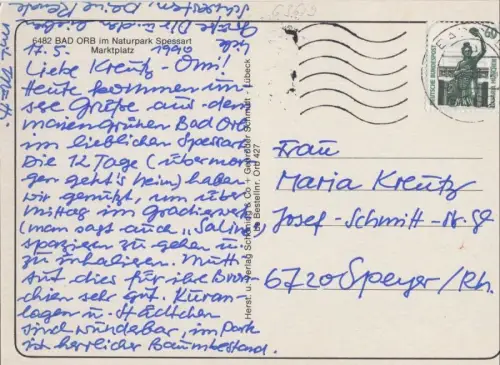 6482 BAD ORB im Naturpark Spessart
Marktplatz
17.5. 1990
Liebe Kreutz-Omi!
Heute kommen un-
sre Grüße aus dem
maiengrünen Bad Orb
im lieblichen Spessart.
Die 12 Tage (übermor-
gen geht's heim) haben
wir genutzt, um über
Mittag im Gradierwerk
(man sagt auch „Saline")
spazieren zu gehen u.
zu inhalieren. Mutti
tut dies für ihre Bron-
chien sehr gut. Kuran-
lagen u. Städtchen
sind wunderbar, im Park
ist herrlicher Baumbestand.
Herst. u. Verlag Schöning & Co + Gebrüder Schmidt · Lübeck
Bestellnr. Orb 427
DEUTSCHE BUNDESPOST
60
Frau
Maria Kreutz
Josef-Schmitt-Str. 9e
6720 Speyer/Rh.